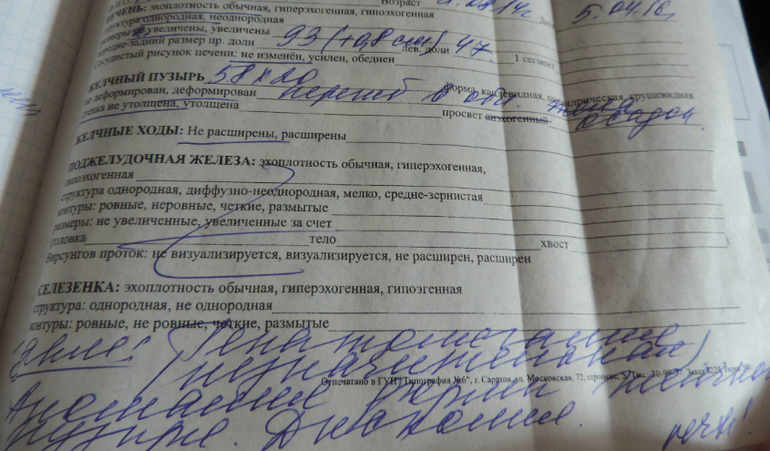 Возраст
ПЕЧЕНЬ: эхоплотность обычная, гиперэхогенная, гипоэхогенная 5.04.16
структура однородная, неоднородная
увеличены, увеличены
передне-задний размер пр. доли 93 (+0,8 см) лев. доли 47 1 сегмент
сосудистый рисунок печени: не изменён, усилен, обеднен
ЖЕЛЧНЫЙ ПУЗЫРЬ 58х20 форма, каплевидная, цилиндрическая, грушевидная
не деформирован, деформирован перегиб в обл.
стенка не утолщена, утолщена просвет анэхогенный осадок
ЖЕЛЧНЫЕ ХОДЫ: Не расширены, расширены
ПОДЖЕЛУДОЧНАЯ ЖЕЛЕЗА: эхоплотность обычная, гиперэхогенная,
гипоэхогенная
структура однородная, диффузно-неоднородная, мелко, средне-зернистая
контуры: ровные, неровные, четкие, размытые
размеры: не увеличенные, увеличенные за счет
головка тело хвост
Вирсунгов проток: не визуализируется, визуализируется, не расширен, расширен
СЕЛЕЗЕНКА: эхоплотность обычная, гиперэхогенная, гипоэгенная
структура: однородная, не однородная
контуры: ровные, не ровные, четкие, размытые
Гепатомегалия
(незначительная)
Отпечатано в ГУП "Типография №6", г. Саратов, ул. Московская, 72
Аномалия формы желчного
пузыря. Дисхолия.